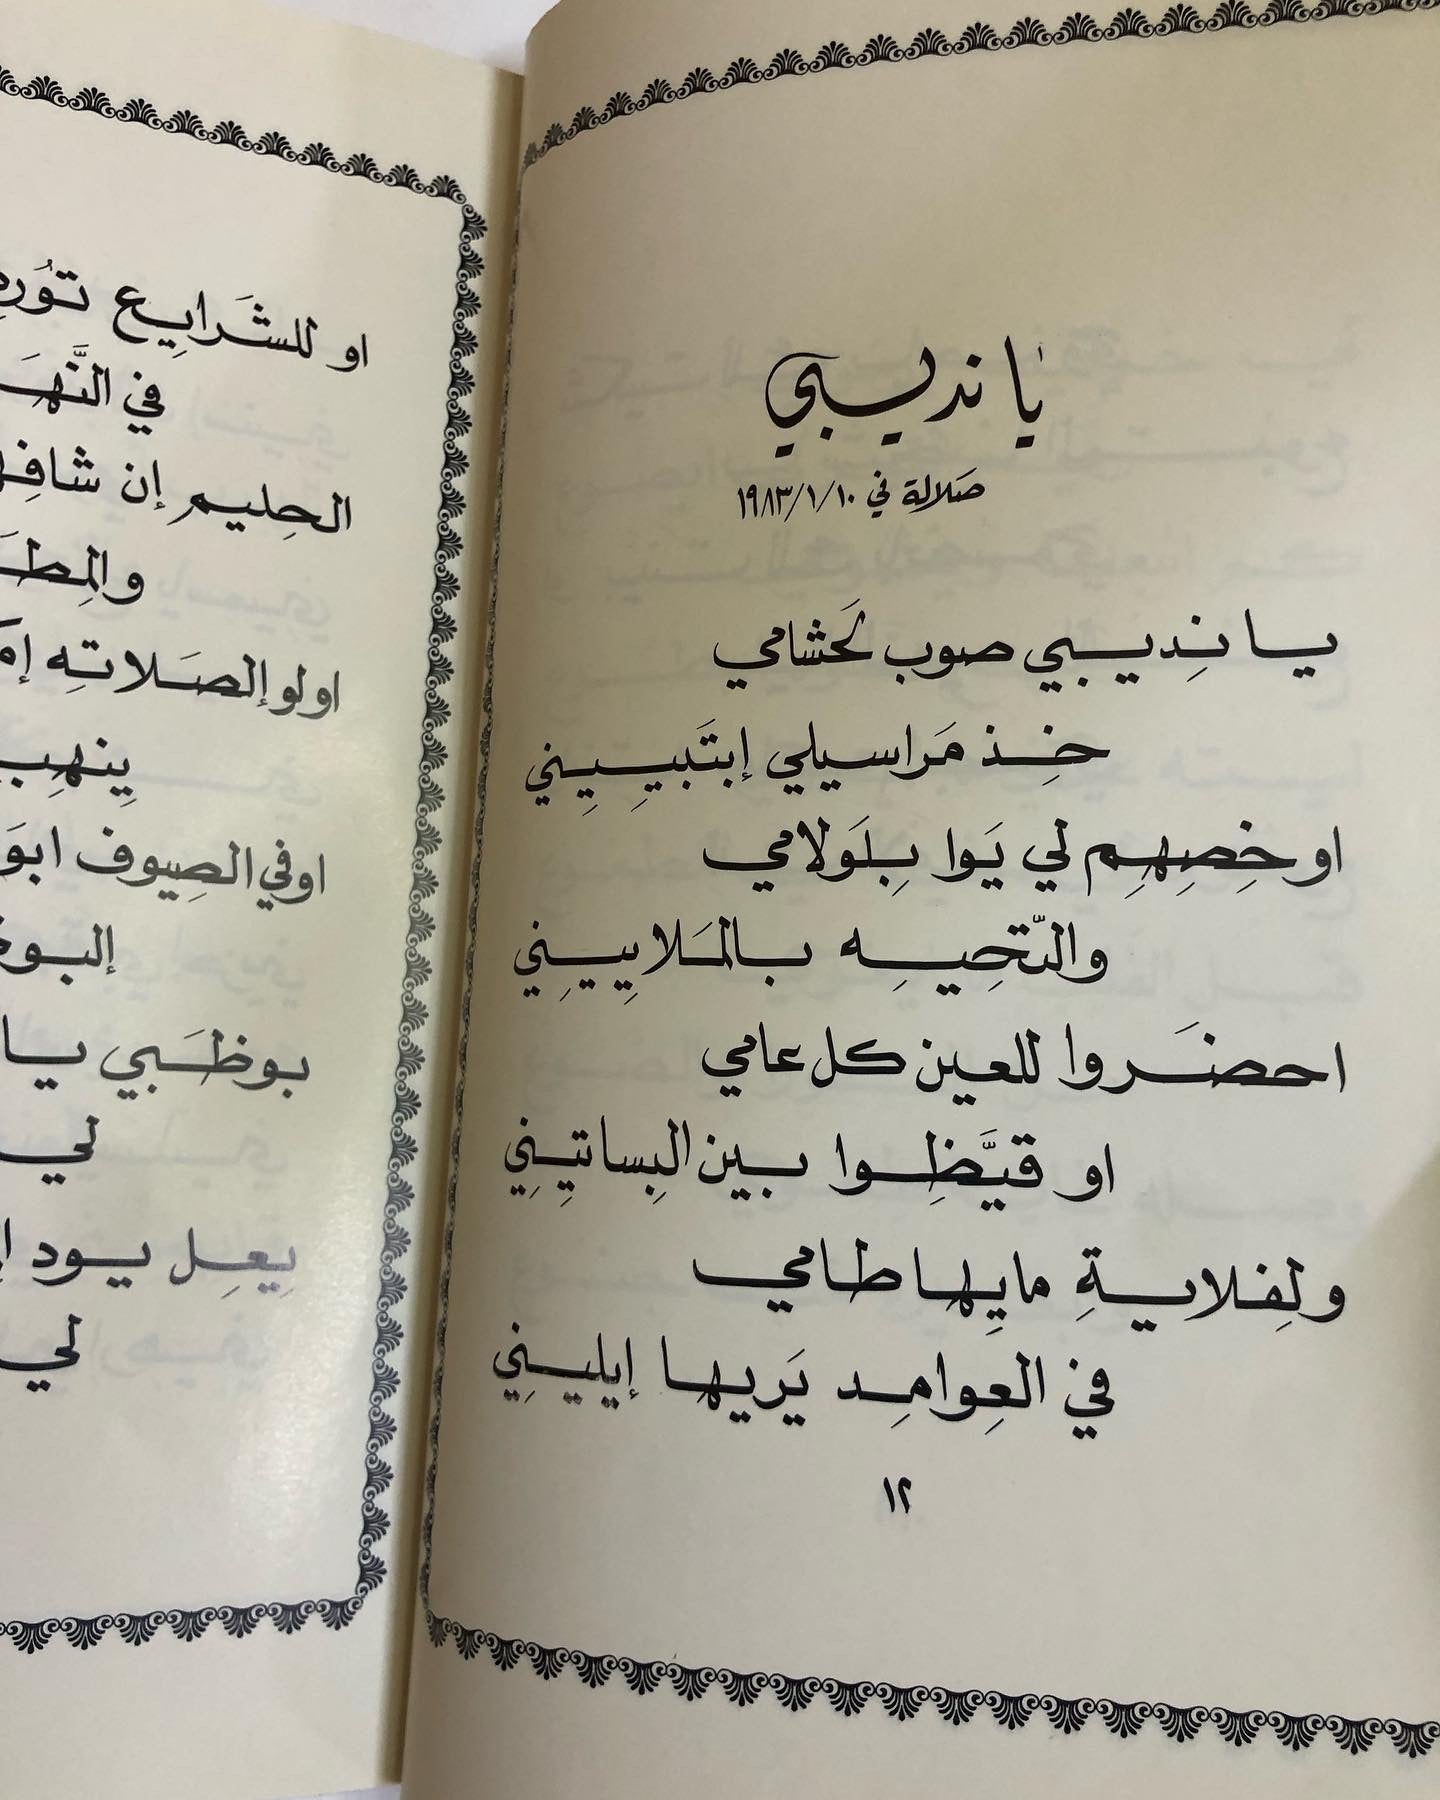 يا نديبي
صلالة في ١٩٨٣/١/١٠
يا نِديبي صوب لَحشامي
خِذ مَراسيلي إبتَبيِيني
او خِصِهِم لي يَوا بِلَولامي
والتّحِيه بالمَلايِيِني
احضَروا للعين كل عامي
او قيَّظِوا بين البِساتيِنِي
ولفِلايةِ مايِها طامي
في العِوامِد يَريها إيليِني
١٢
او للشَرايِع
في
الحِليم إن
اولو إلصَلاتِه
او في الصِيوف
بوظَبي يا
لي
يِعِل يود
لي